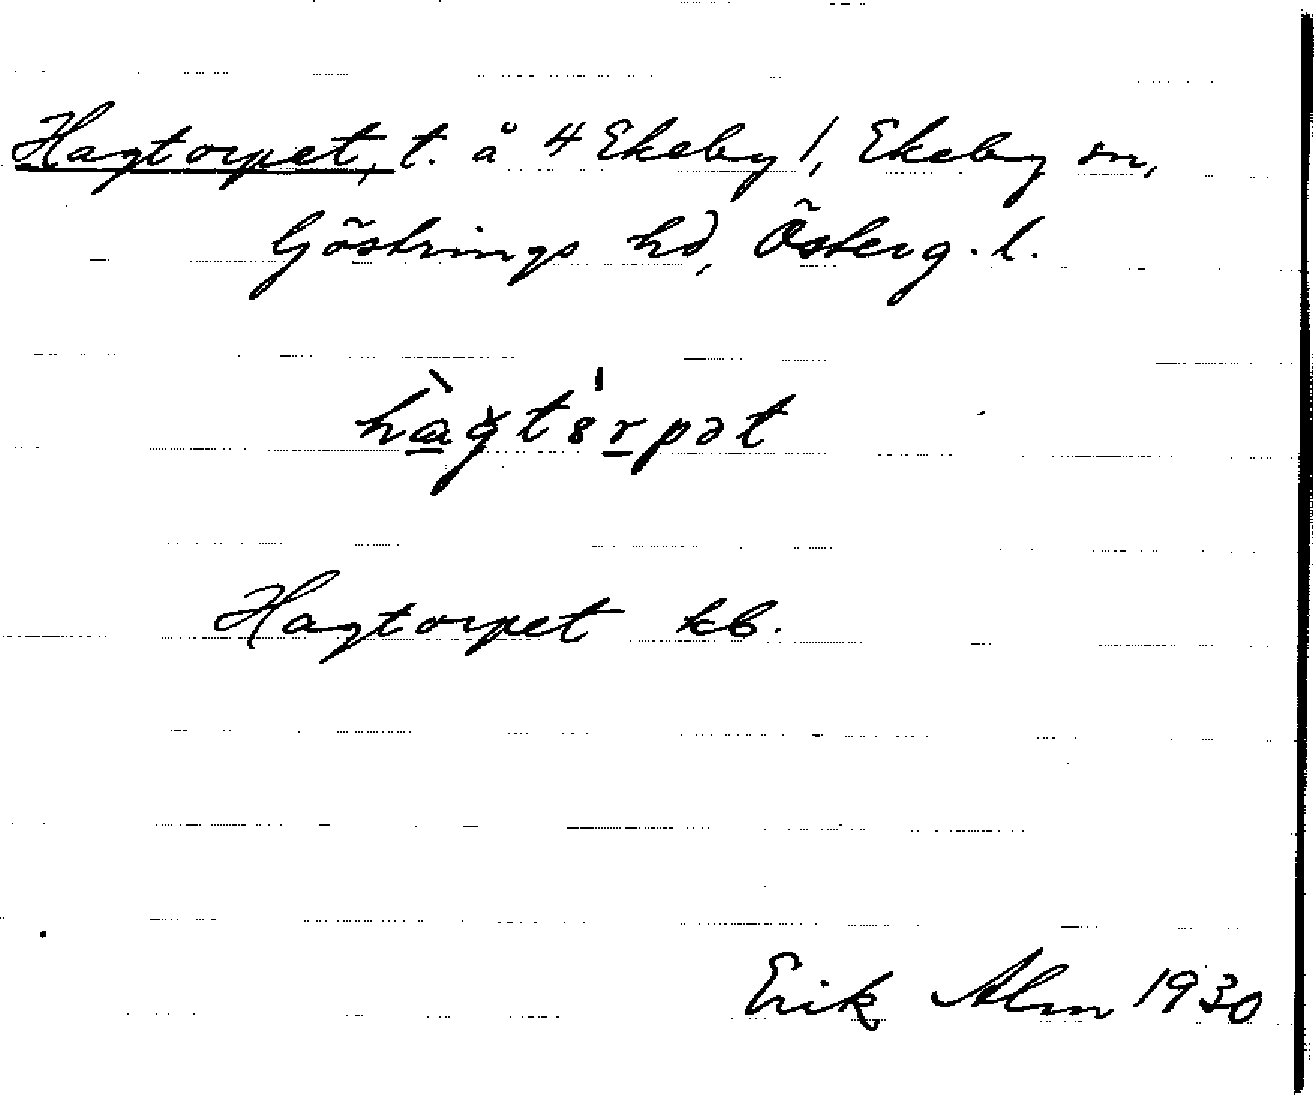 Hagtorpet, t. å 4 Ekeby 1, Ekeby sn,
Göstrings hd, Österg. l.
Hagtorpet kb.
Erik Alm 1930